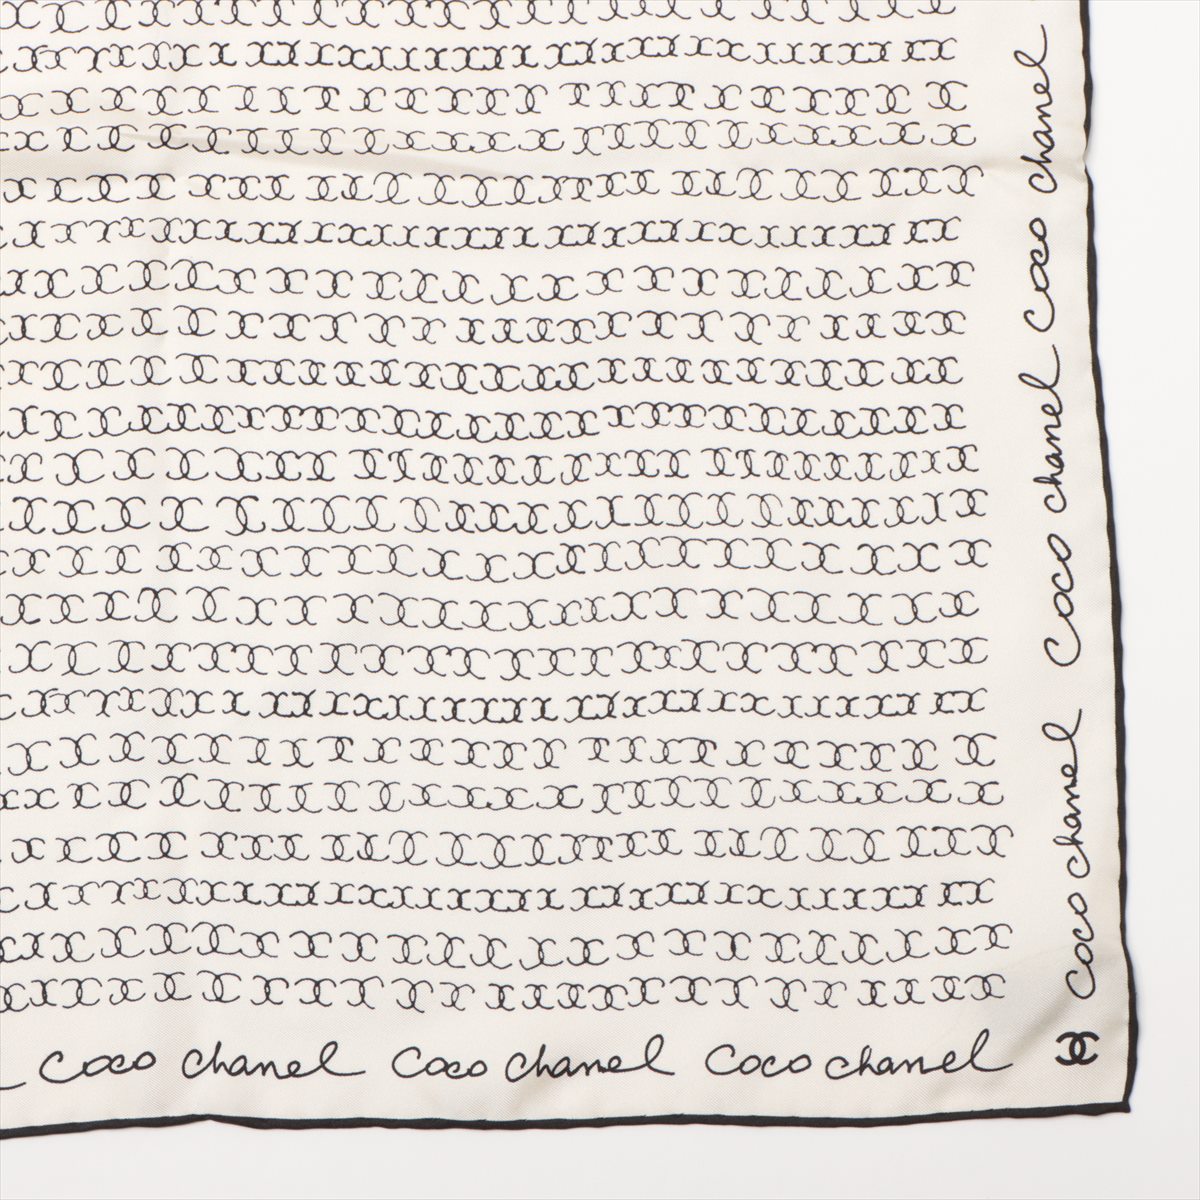 Coco chanel Coco chanel Coco chanel
Coco chanel Coco chanel Coco chanel